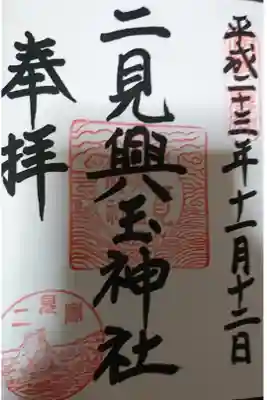 平成二十三年十一月十二日
二見興玉神社
奉拝
二見浦